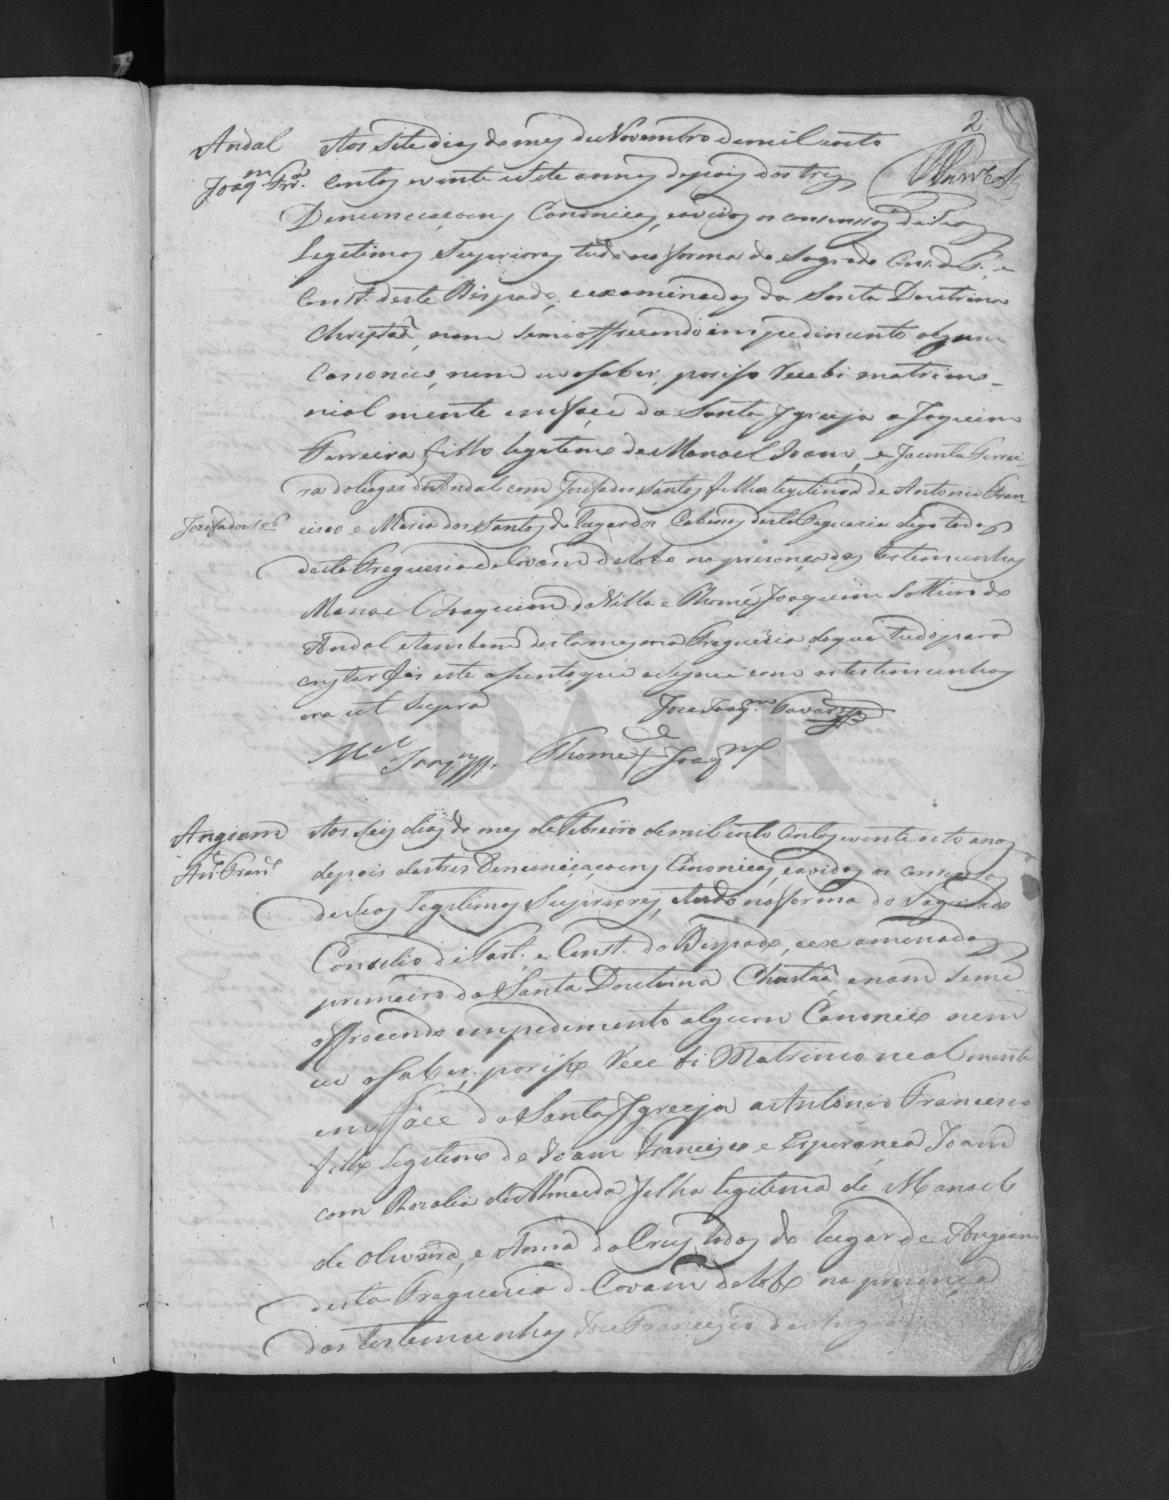 2
Andal
Joaqm Frª.
Aos Sete dias do mes de Novembro de mil oito
centos e vinte e Sete annos depois das tres
Denunciaçoens Canonicas, e avidos os consensos de seos
Legitimos Superiores tudo na forma do Sagrado Con. de T. e
Const. deste Bispado, e examinados da Santa Doutrina
Christaã, e nam semeofferecendo impedimento algum
Canonico, nem eu o saber, por iso Recebi matrimo-
nialmente em face da Santa Igreeja a Joaquim
Ferreira filho legitimo de Manoel Joam, e Jacinta Ferrei-
ra do lugar de Andal com Josefa dos Santos filha legitima de Antonio Fran-
Josefa dos Stos
cisco e Maria dos Santos do lugar de Cabesos desta Freguesia digo todos
desta Freguesia de Covam do Lobo na prezença das testemunhas
Manoel Joaquim da Villa e Thomé Joaquim Solteiro de
Andal e tambem desta mesma Freguesia do que tudo para
constar fis este asento que asignei com as testemunhas
era ut Supra
Joze Joaqm Tavares
Mel Joaqm
Thome Joaqm
Angeam
Anto. Franco
Aos Seis dias do mes de Febreiro de mil oito centos e vinte oito anos
depois das tres Denunciaçoens Canonicas, e avidos os consensos
de Seos Legitimos Superiores, e tudo na forma do Sagrado
Consilio di Trid. e Const. do Bispado, e examenados
primeiro da Santa Doutrina Christaã, e nam seme
offrecendo empedimento algum Canonico nem
eu o saber, por iso Recebi Matrimonealmente
em face da Santa Igreeja a Antonio Francisco
filho legitimo de Joam Francisco e Esperança Joam
com Rozalia de Almeida filha legitima de Manoel
de Oliveira, e Anna da Crus todos do lugar de Angeam
desta Freguesia de Covam do Lobo na prezença
das testemunhas Joze Francisco de Angeam
ADAVR